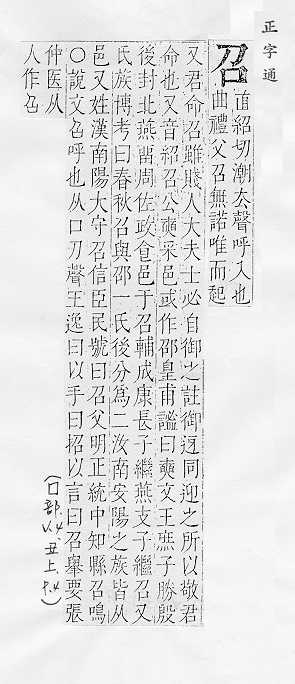 正字通
召
直紹切潮去聲呼人也
曲禮父召無諾唯而起
又君命召雖賤人大夫士必自御之註御迓同迎之所以敬君
命也又音紹召公奭采邑或作邵皇甫謐曰奭文王庶子勝殷
後封北燕畱周佐政食邑于召輔成康長子繼燕支子繼召又
氏族博考曰春秋召與邵一氏後分爲二汝南安陽之族皆从
邑又姓漢南陽大守召信臣民號曰召父明正統中知縣召鳴
〇說文召呼也从口刀聲王逸曰以手曰招以言曰召舉要張
仲医从
人作
(口部 v.4, 丑上, p.4)